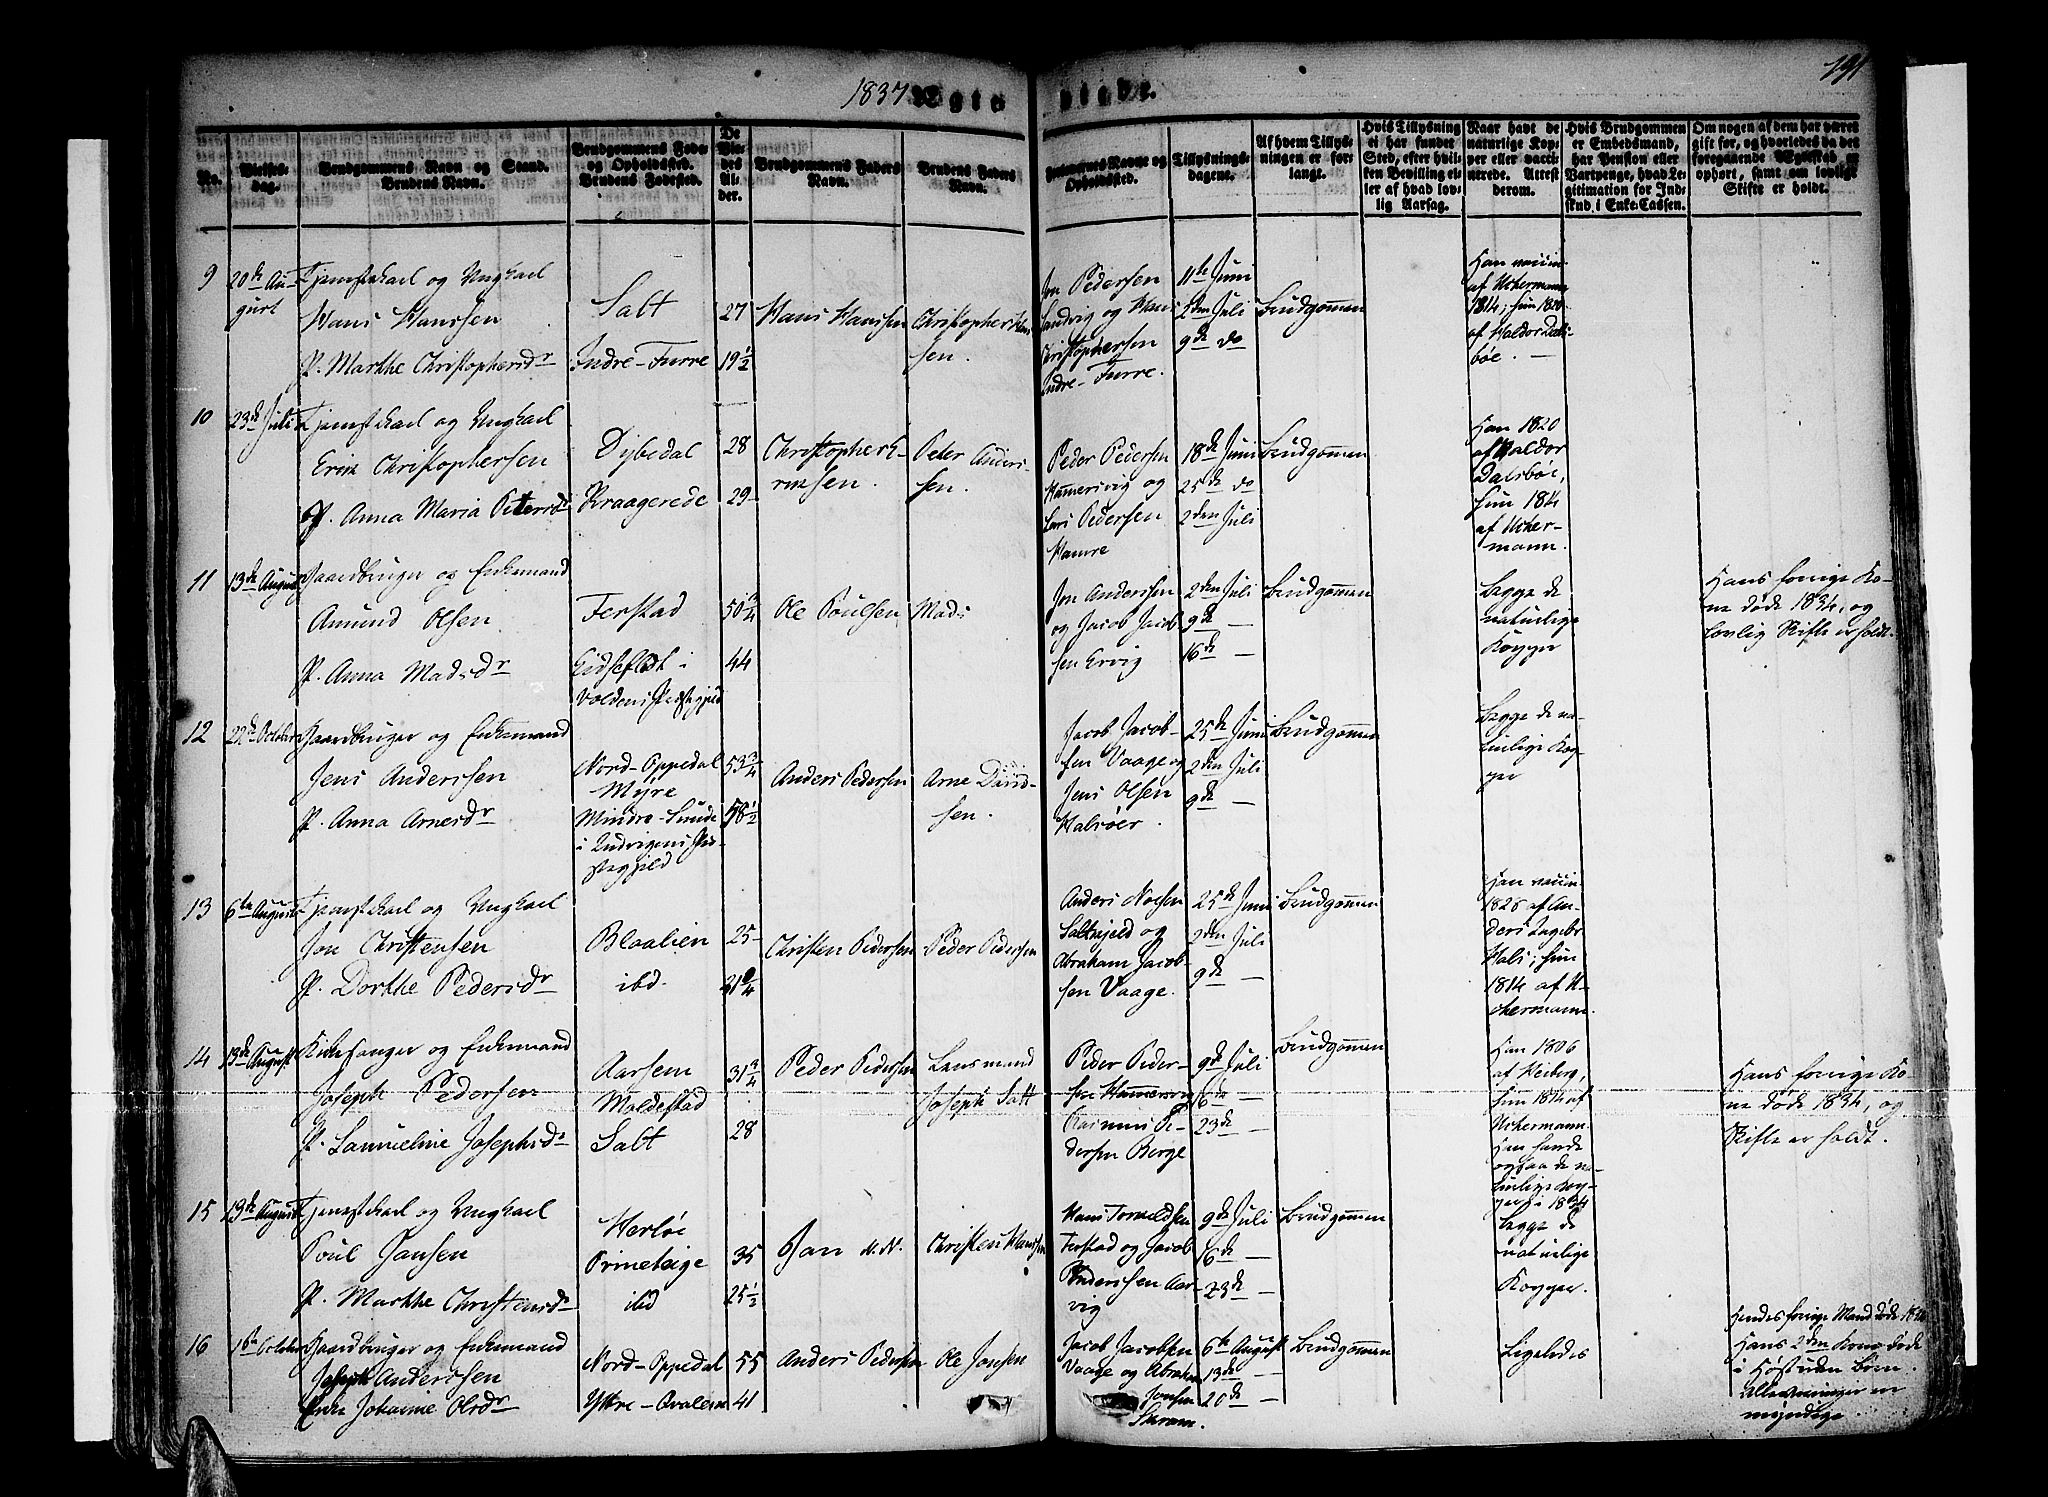 1837
Ægteviede.
191
No.
Vielses-
dag.
Brudgommens Navn og Stand.
Brudens Navn.
Brudgommens Føde-
og Opholdssted.
Brudens Fødested.
De
Vie-
des
Al-
der.
Brudgommens Faders
Navn.
Brudens Faders
Navn.
Forlovernes Navne og
Opholdssted.
Tillysnings-
dagene.
Af hvem Tillys-
ningen er for-
langt.
Hvis Tillysning
ei har fundet
Sted, efter hvil-
ken Bevilling el-
ler af hvad lov-
lig Aarsag.
Naar havt de
naturlige Kop-
per eller vacci-
nerede. Attest
derom.
Hvis Brudgommen
er Embedsmand,
har Pension eller
Vartpenge, hvad Le-
gitimation for Ind-
skud i Enke-Cassen.
Om nogen af dem har været
gift før, og hvorledes da det
foregaaende Ægteskab er
ophørt, samt om lovligt
Skifte er holdt.
9
20de Au-
gust
Tjenestekarl og Ungkarl
Hans Hanssen
P. Marthe Christophersdr
Salt
Indre-Furre
27
19½
Hans Hanssen
Christopher
sen.
Jon Pedersen
Sandvig og Hans
Christophersen
Indre-Furre.
11te Juni
2den Juli
9de do
Brudgommen
Han vaccin.
af Uchermann
1814; hun
af Haldor Dals-
bøe. —
10
23de Juli
Tjenestekarl og Ungkarl
Erik Christophersen
P. Anna Maria Petersdr
Dybedal
Kraagerede
28
29
Christopher E-
riksen.
Peter Anders-
sen.
Peder Pedersen
Hammersvig og
Lars Pedersen
Hamre
18de Juni
25de do
2den Juli
Brudgommen
Han 1820
af Haldor
Dalsbøe,
hun 1814
af Ucher-
mann.
11
13de August
Gaardbruger og Enkemand
Amund Olsen
P. Anna Madsdr
Ferstad
Eidseflodt i
Voldens Præstegjeld
50¾
44
Ole Poulsen
Mads
Jon Anderssen
og Jacob Jacob-
sen Ervig
2den Juli
9de —
16de —
Brudgommen
Begge de
naturlige
Kopper
Hans forrige Ko-
ne døde 1834, og
lovlig Skifte er holdt.
12
22de October
Gaardbruger og Enkemand
Jens Anderssen
P. Anna Arnesdr
Nord-Oppedal
Myre
Mindre-Sunde
i Indvigens Præ-
stegjeld
53¾
58½
Anders Pedersen
Arne David-
sen.
Jacob Jacob-
sen Vaage og
Jens Olsen
Halsøer.
25de Juni
2den Juli
9de —
Brudgommen
Begge de na-
turlige Kop-
per
13
6te August
Tjenestekarl og Ungkarl
Jon Christensen
P. Dorthe Pedersdr
Blaalien
ibd.
25
Christen Pedersen
Peder Pedersen
Anders Noesen
og
Abraham Jacob-
sen Vaage.
25de Juni
2den Juli
9de
Brudgommen
Han vaccin.
1826 af An-
ders Ingebr.
Hals; hun
1814 af U-
chermann.
14
13de August
Kirkesanger og Enkemand
Joseph Pedersen
P. Samueline Josephsdr
Aarsem
Moldestad
Salt
31¾
28
Peder Pedersen
Lensmand
Joseph Salt
Peder Peder-
sen Hammersvig
Rasmus Pe-
dersen Berge
9de Juli
16de —
23de —
Brudgommen
Han 1806
af Heiberg,
hun 1814 af
Uchermann.
Han havde
ogsaa de na-
turlige Kop-
per i
Hans forrige Ko-
ne døde 1834, og
Skifte er holdt.
15
13de August
Tjenestekarl og Ungkarl
Poul Jansen
P. Marthe Christensdr
Harløe
Prineteige
ibd
35
25½
Jan N.N.
Christen Hanssen
Hans Torvaldsen
Ferstad og Jacob
Anderssen Aar-
vig
9de Juli
16de —
23de —
Brudgommen
Begge de
naturlige
Kopper.
16
1ste October
Gaardbruger og Enkemand
Joseph Anderssen
Enke Johanne Olsdr
Nord-Oppedal
Yttre-Qvalem
55
41
Anders Pedersen
Ole Jonsen
Jacob Jacobsen
Vaage og Abraham
Jonsen
6te August
13de —
20de —
Brudgommen
Ligeledes
Hendes forrige Mand døde
Hans 2den Kone døde
i Høst uden Børn.
Alle Arvinger er
myndige.